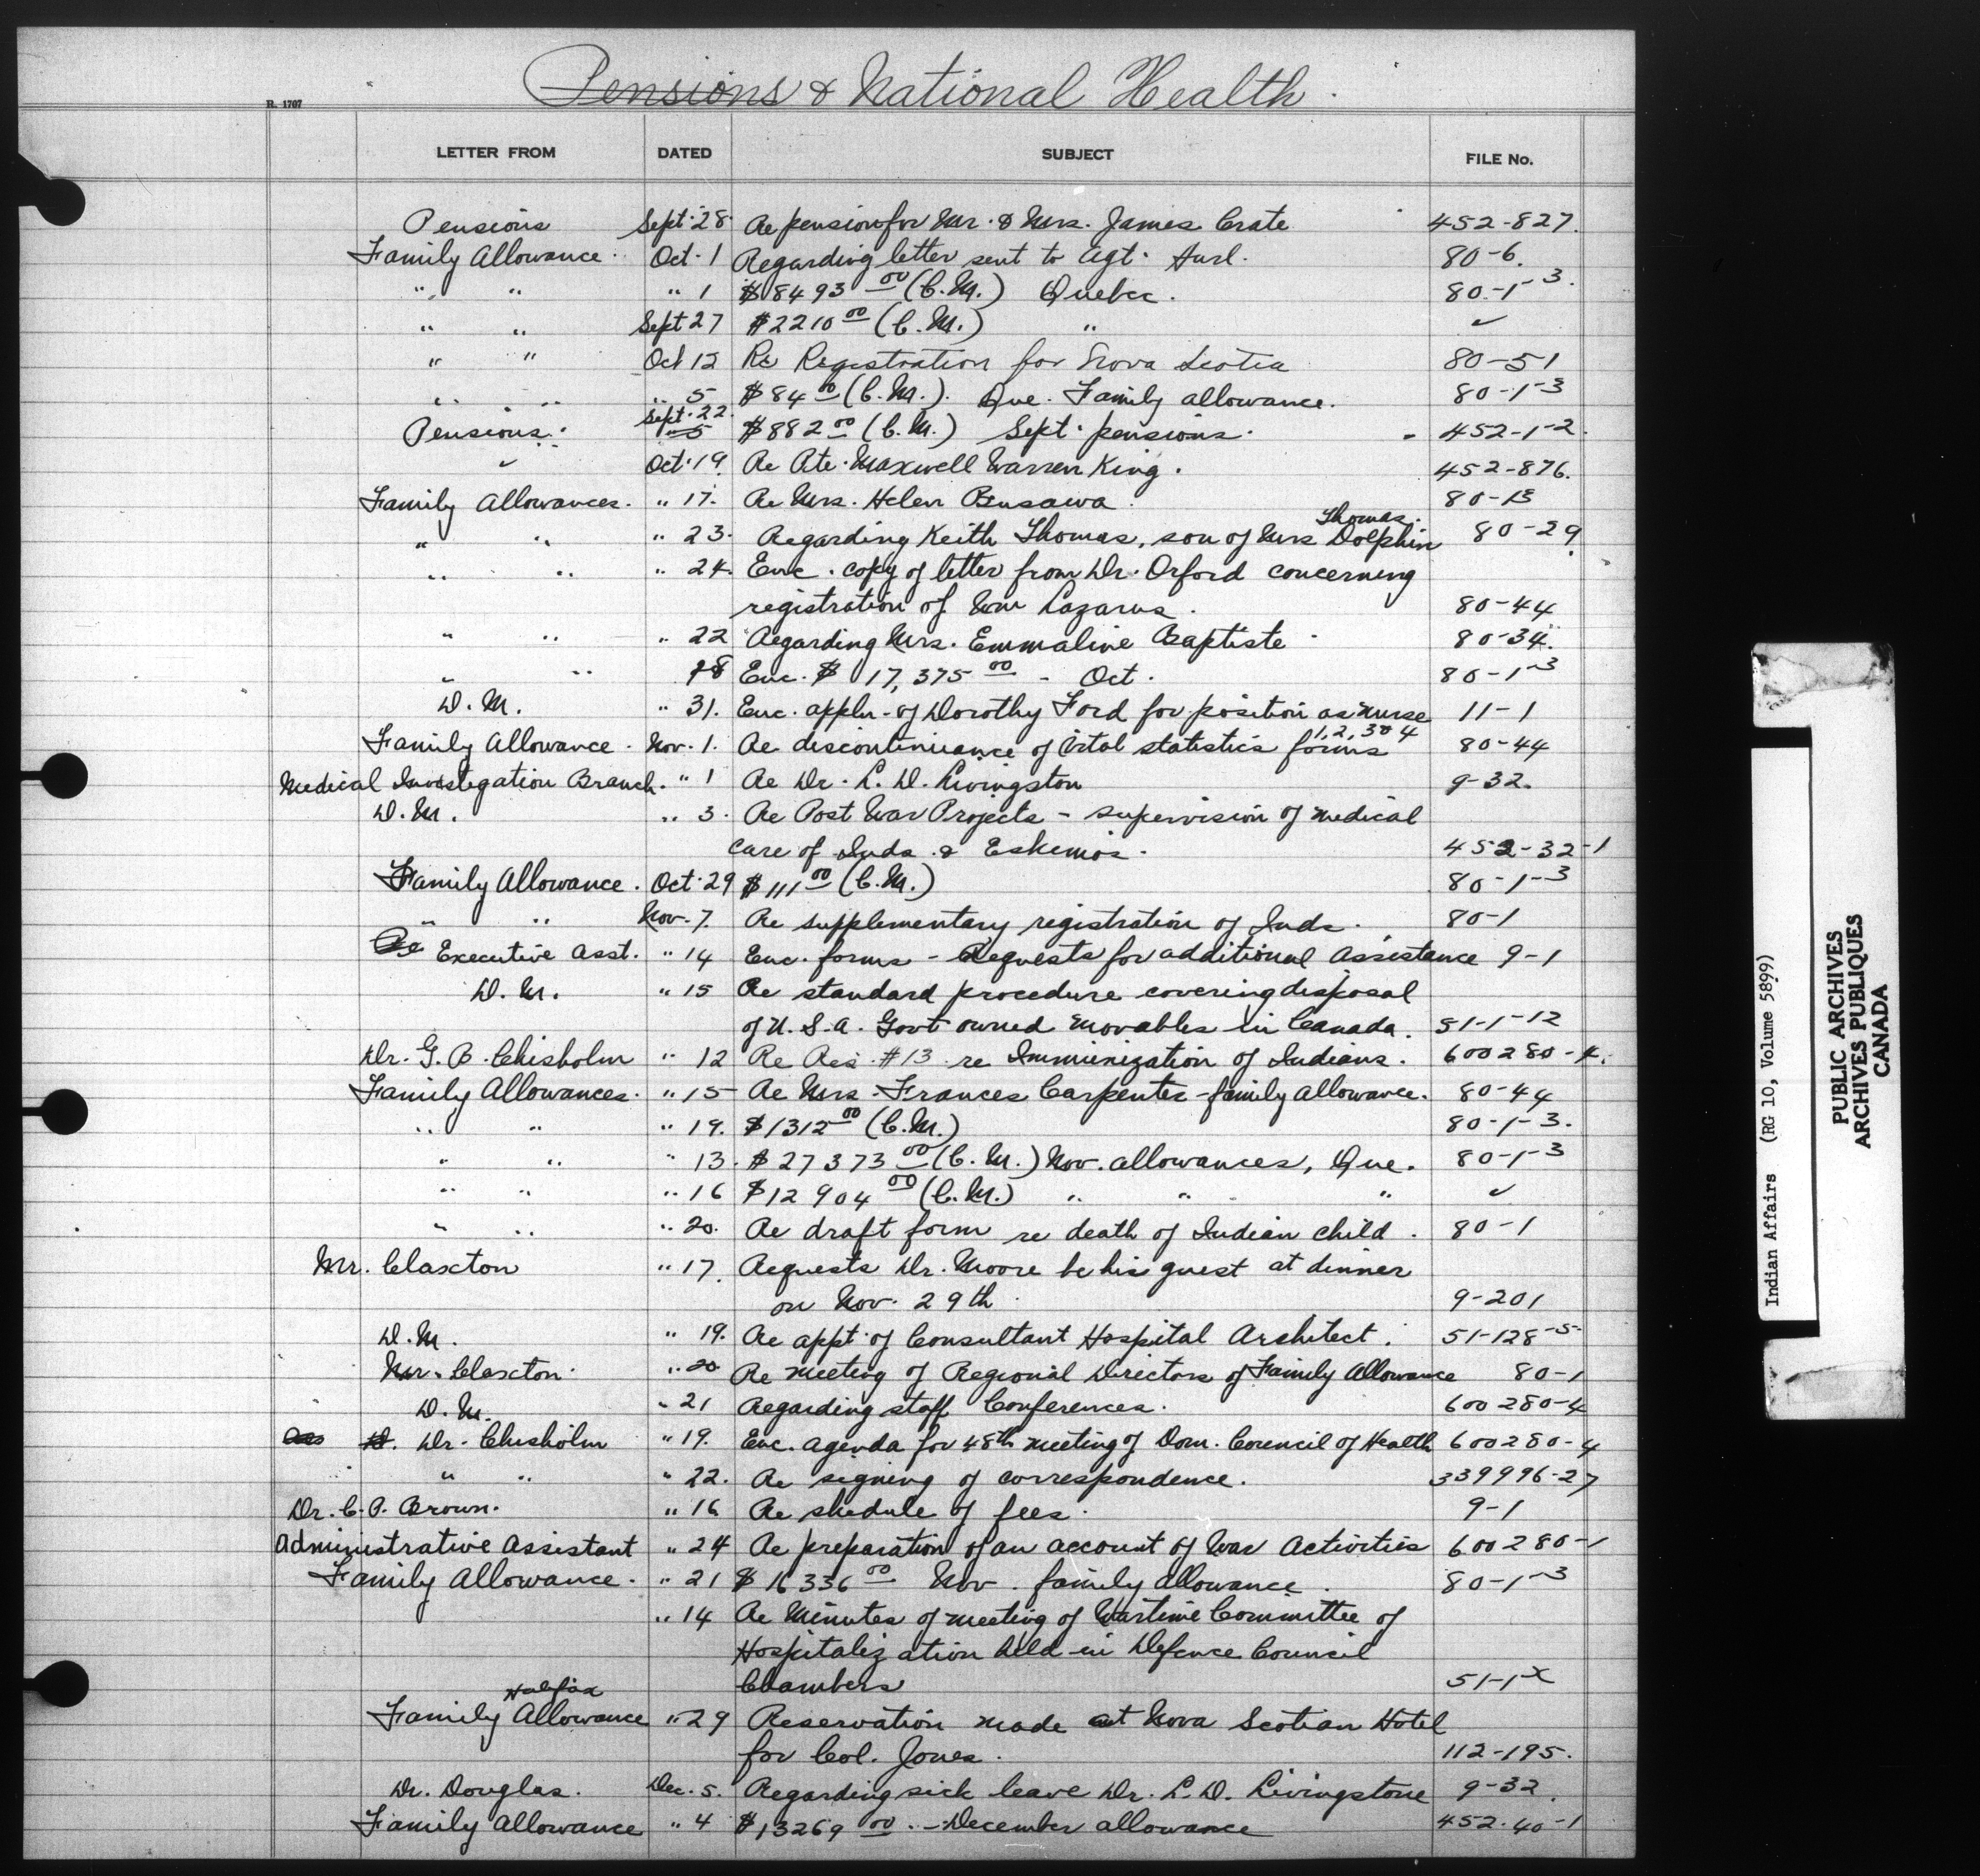 Pensions & National Health.
R. 1707
LETTER FROM DATED SUBJECT FILE No.
Pensions Sept. 28. Re pension for Mr. & Mrs. James Crate 452-827.
Family Allowance. Oct. 1 Regarding letter sent to Agt. Hurl. 80-6.
" " " 1 $8493 00 (C.M.) Quebec. 80-1-3.
" " Sept 27 $2210 00 (C.M.) " ✓
" " Oct 12 Re Registration for Nova Scotia 80-51
" " " 5 $84 00 (C.M.). Que. Family allowance. 80-1-3
Pensions. Sept. 22. $882 00 (C.M.) Sept. pensions. 452-1-2.
✓ Oct. 19. Re Pte. Maxwell Warren King. 452-876.
Family Allowances. " 17. Re Mrs. Helen Busawa. 80-13
" " " 23. Regarding Keith Thomas, son of Mrs Dolphin Thomas. 80-29.
" " " 24. Enc. copy of letter from Dr. Orford concerning
registration of Wm Lazarus. 80-44
" " " 22 Regarding Mrs. Emmaline Baptiste. 80-34.
" " 28 Enc. $ 17,375 00 - Oct. 80-1-3
D.M. " 31. Enc. appln. of Dorothy Ford for position as nurse 11-1
Family Allowance. Nov. 1. Re discontinuance of vital statistics forms 1, 2, 3 & 4 80-44
Medical Investigation Branch. " 1 Re Dr. L. D. Livingston 9-32.
D.M. " 3. Re Post War Projects - supervision of medical
care of Inds. & Eskimos. 452-32-1
Family Allowance. Oct. 29 $111 00 (C.M.) 80-1-3
" " Nov. 7. Re supplementary registration of Inds. 80-1
Executive Asst. " 14 Enc. forms - Requests for additional Assistance 9-1
D.M. " 15 Re standard procedure covering disposal
of U.S.A. Govt owned movables in Canada. 51-1-12
Dr. G. B. Chisholm " 12 Re Res. #13 re Immunization of Indians. 600280-4.
Family Allowances. " 15 Re Mrs. Frances Carpenter - family allowance. 80-44
" " " 19. $1312 00 (C.M.) 80-1-3.
" " " 13. $27373 00 (C.M.) Nov. allowances, Que. 80-1-3
" " " 16 $12904 00 (C.M.) " " " ✓
" " " 20. Re draft form re death of Indian child. 80-1
Mr. Claxton " 17. Requests Dr. Moore be his guest at dinner
on Nov. 29th. 9-201
D.M. " 19. Re appt. of Consultant Hospital Architect. 51-128-5.
Mr. Claxton. " 20 Re meeting of Regional Directors of Family Allowance 80-1
D.M. " 21 Regarding staff Conferences. 600280-4
Dr. Chisholm " 19. Enc. agenda for 48th meeting of Dom. Council of Health 600280-4
" " " 22. Re signing of correspondence. 339996-27
Dr. C.P. Brown. " 16 Re shedule of fees. 9-1
Administrative Assistant " 24 Re preparation of an account of War Activities 600280-1
Family Allowance. " 21 $16336 00 Nov. family allowance. 80-1-3
" 14 Re Minutes of meeting of Wartime Committee of
Hospitalization held in Defence Council
Chambers 51-1-X
Halifax
Family Allowance " 29 Reservation made at Nova Scotian Hotel
for Col. Jones. 112-195.
Dr. Douglas. Dec. 5. Regarding sick leave Dr. L. D. Livingstone 9-32.
Family Allowance " 4 $13269 00. - December allowance 452-40-1
Indian Affairs (RG 10, Volume 5899)
PUBLIC ARCHIVES
ARCHIVES PUBLIQUES
CANADA